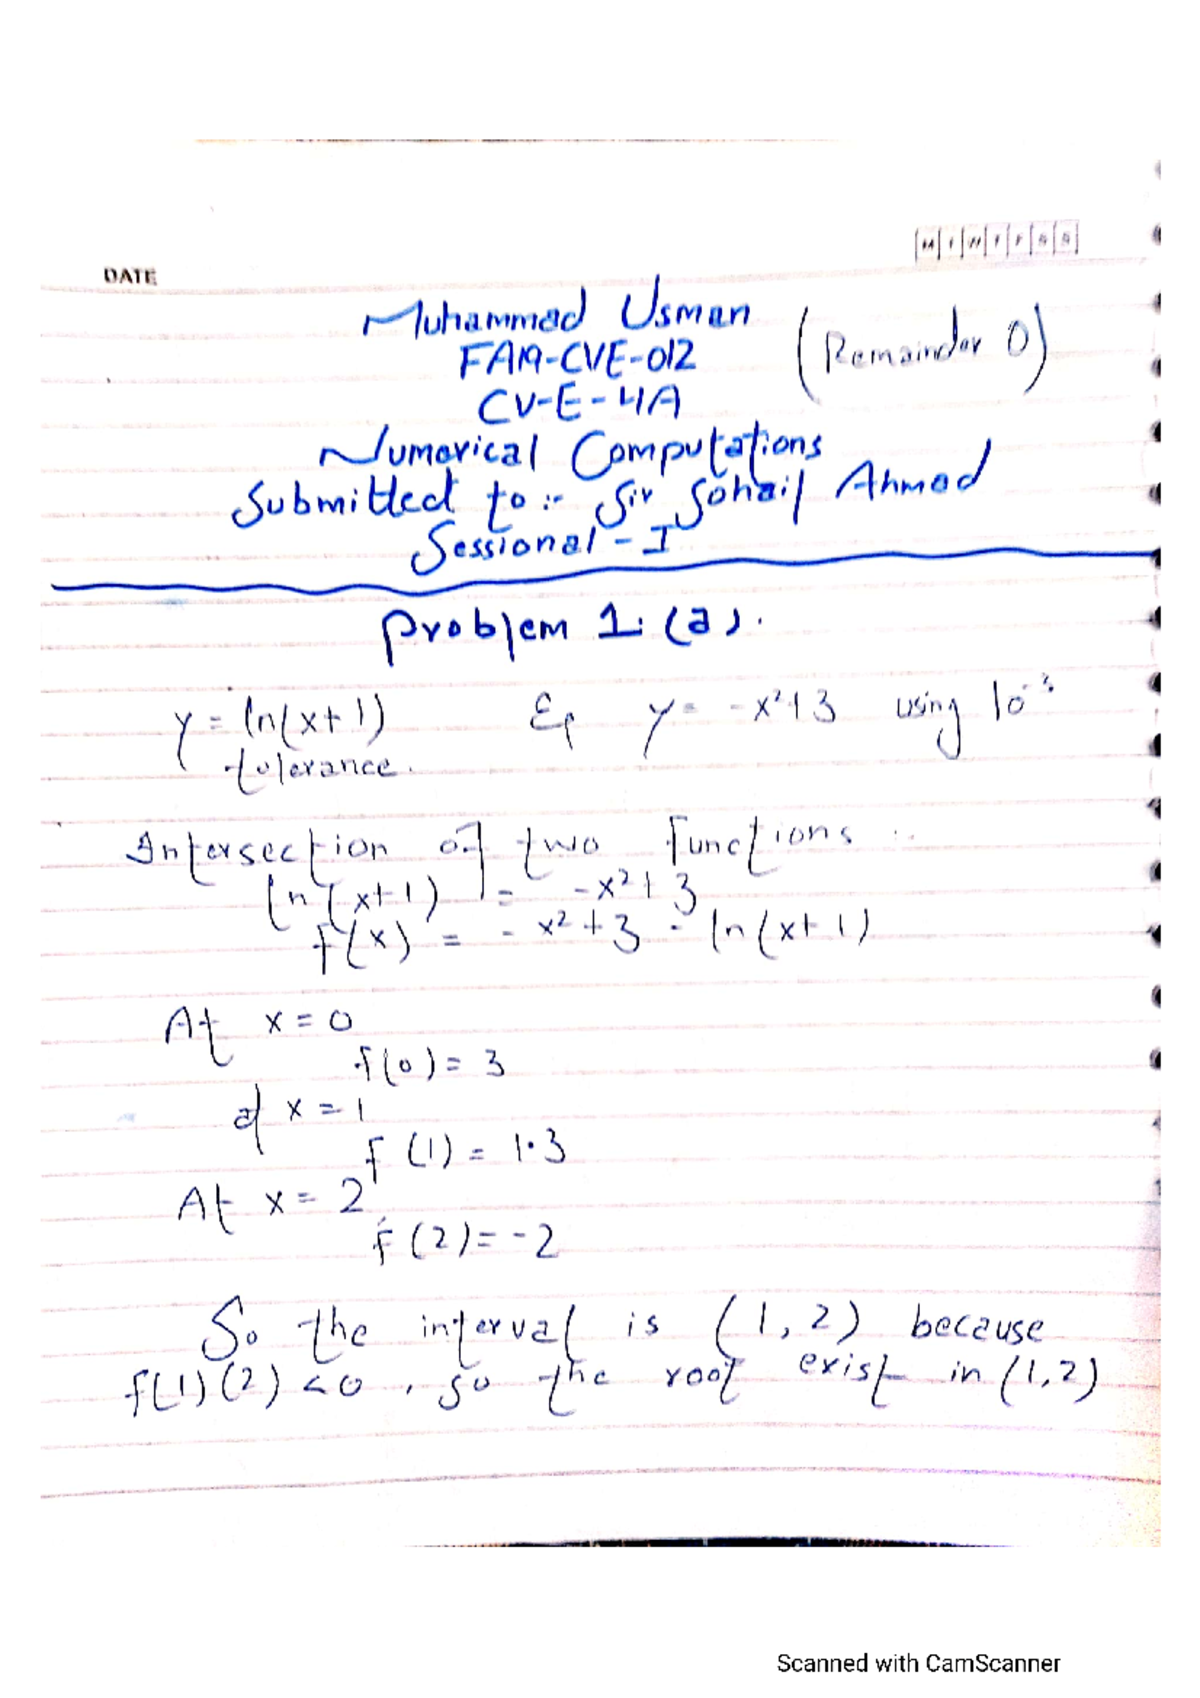 M T W T F S S
DATE
Muhammad Usman
(Remainder 0)
FA19-CVE-012
CV-E-4A
Numerical Computations
Submitted to :- Sir Sohail Ahmad
Sessional - I
Problem 1. (a).
y = ln(x+1) & y = -x²+3 using 10⁻³
tolerance.
Intersection of two functions :-
ln(x+1) = -x²+3
f(x) = -x²+3 - ln(x+1)
At x = 0
f(0) = 3
at x = 1
f(1) = 1.3
At x = 2
f(2) = -2
So the interval is (1, 2) because
f(1)(2) <0 , so the root exist in (1,2)
Scanned with CamScanner